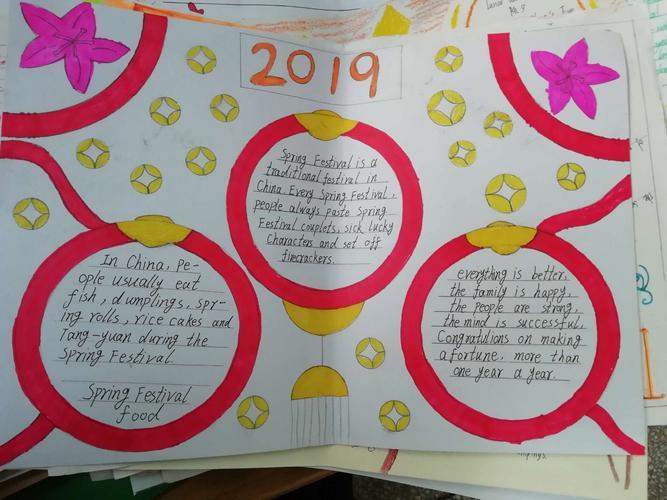 2019
Spring Festival is a
traditional festival in
China. Every Spring Festival,
people always paste Spring
Festival couplets, sick lucky
Characters and set off
firecrackers.
In China, Pe-
ople usually eat
fish, dumplings, spr-
ing rolls, rice cakes and
Tang-yuan during the
Spring Festival
Spring Festival
food
everything is better,
the family is happy,
the people are strong,
the mind is successful,
Congratulions on making
a fortune, more than
one year a year.